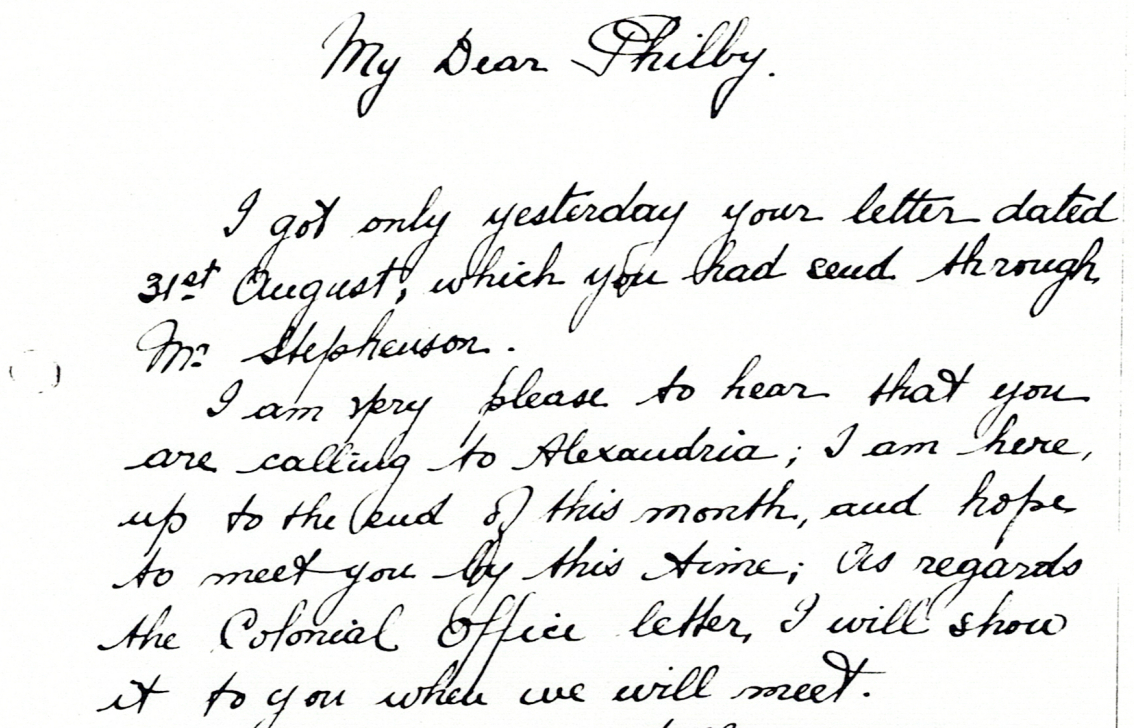 My Dear Philby.
I got only yesterday your letter dated
31st August, which you had send through
Mr. Stephenson.
I am very please to hear that you
are calling to Alexandria; I am here,
up to the end of this month, and hope
to meet you by this time; As regards
the Colonial Office letter, I will show
it to you when we will meet.